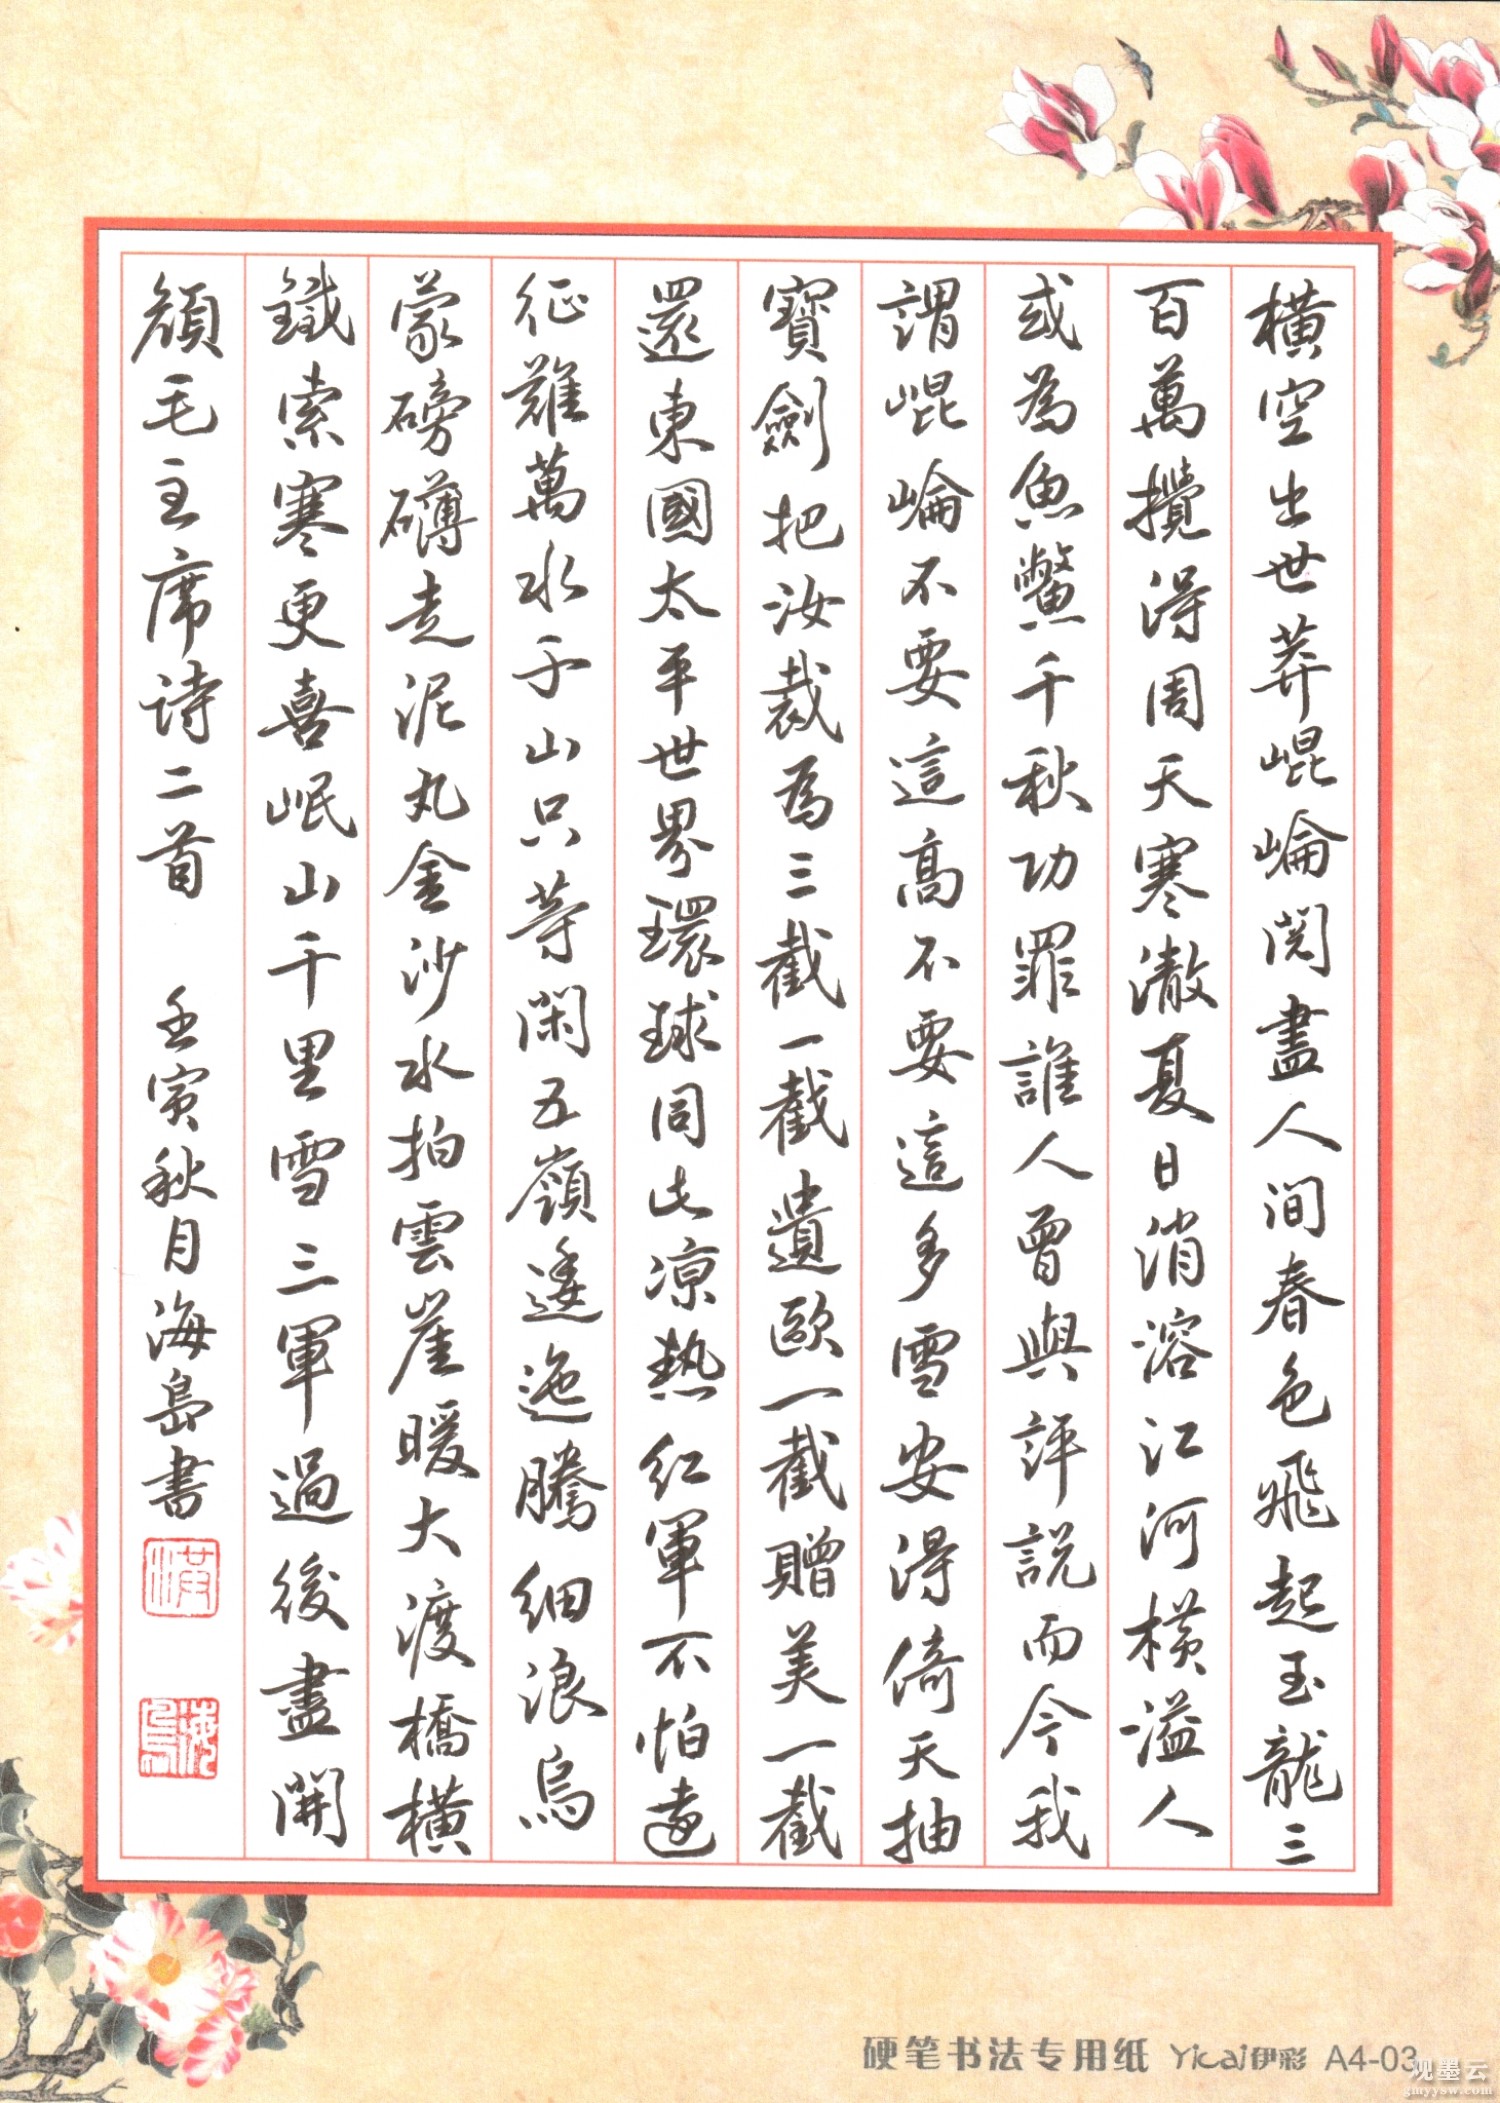 橫空出世莽崐崘閱盡人间春色飛起玉龍三
百萬攪得周天寒澈夏日消溶江河横溢人
或為魚鱉千秋功罪誰人曾與評說而今我
謂崐崘不要這高不要這多雪安得倚天抽
寶劍把汝裁為三截一截遺歐一截贈美一截
還東國太平世界環球同此凉熱红軍不怕遠
征難萬水千山只等閑五嶺逶迤騰细浪烏
蒙磅礴走泥丸金沙水拍雲崖暖大渡橋橫
鐵索寒更喜岷山千里雪三軍過後盡開
顏毛主席诗二首 壬寅秋月海島書
硬笔书法专用纸 Yicai伊彩 A4-03
观墨云
gmyysw.com